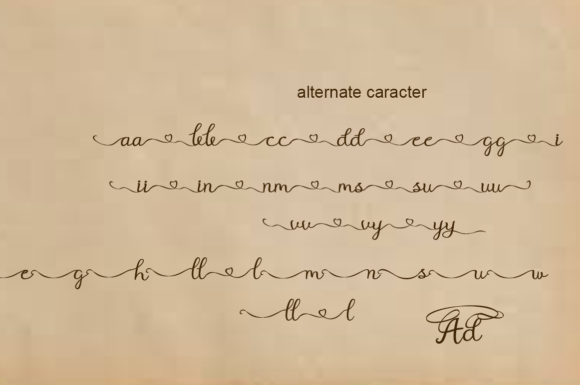 alternate caracter
aa bb cc dd ee gg i
ii in nm ms su uu
vv vy yy
e g h ll l m n s u w
ll l
Ad